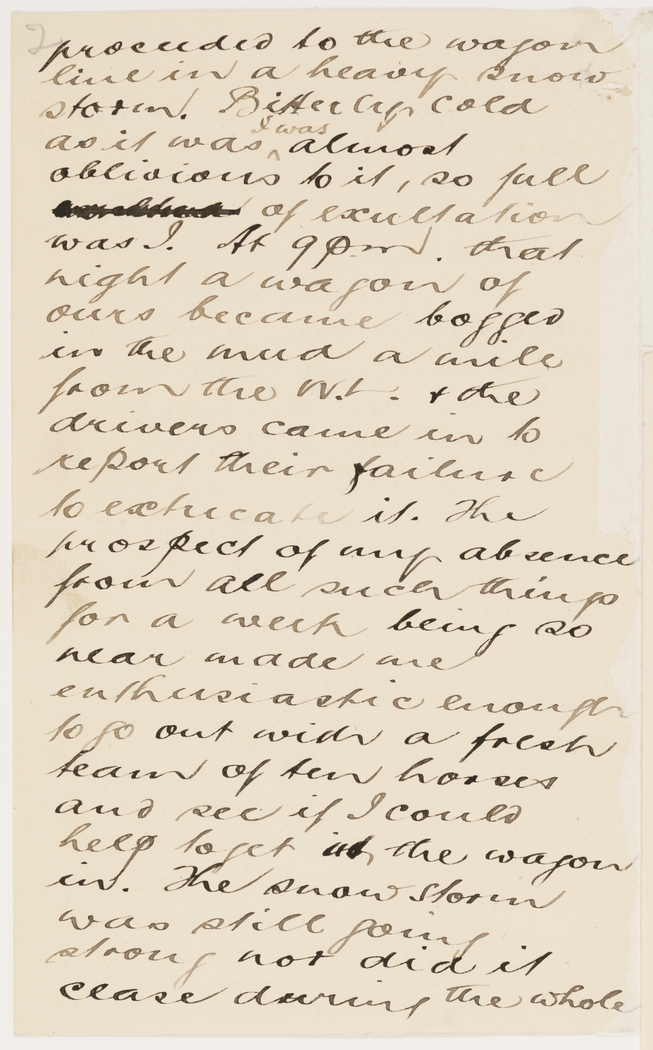 2
proceeded to the wagon
line in a heavy snow
storm. Bitterly cold
as it was, I was almost
oblivious to it, so full
of exultation
was I. At 9pm. that
night a wagon of
ours became bogged
in the mud a mile
from the W.L. & the
drivers came in to
report their failure
to extricate it. The
prospect of my absence
from all such things
for a week being so
near made me
enthusiastic enough
to go out with a fresh
team of ten horses
and see if I could
help to get the wagon
in. The snow storm
was still going
strong nor did it
cease during the whole